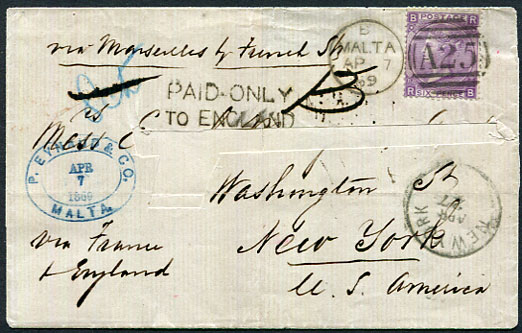 via Marseilles by French Str
B
MALTA
AP 7
69
B POSTAGE R
A25
R SIX PENCE B
PAID-ONLY
TO ENGLAND
Messrs
P. & CO.
APR
7
1869
MALTA
Washington St
New York
U. S. America
NEW YORK
APR
via France
& England